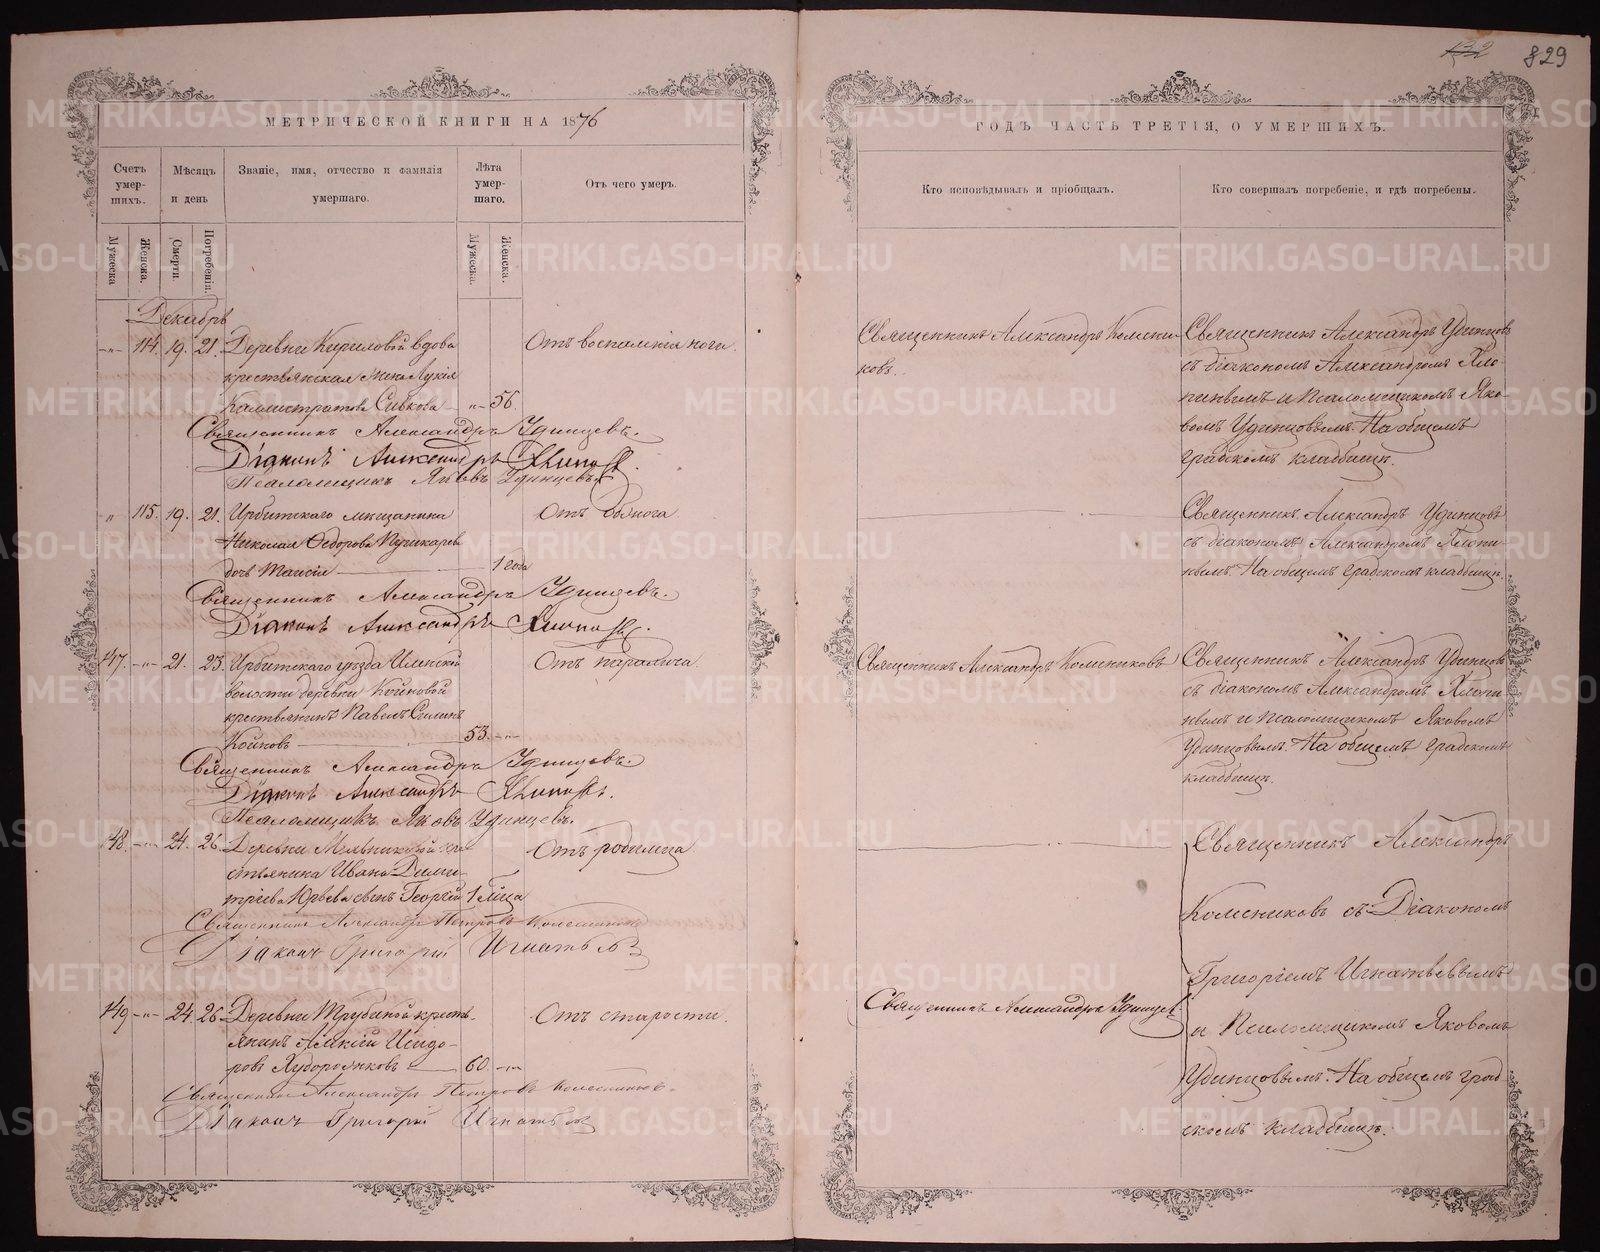 132 829
МЕТРИЧЕСКОЙ КНИГИ НА 1876
Счетъ умер-шихъ.
Мѣсяцъ и день
Званіе, имя, отчество и фамилія умершаго.
Лѣта умер-шаго.
Отъ чего умеръ.
Мужеска
Женска.
Смерти.
Погребенія.
Мужеска.
Женска.
Декабрь
-„- 114. 19. 21. Деревни Кириловой вдова
крестьянская жена Лукія
Каллистратова Сивкова -„- 56.
Отъ воспаленія ноги.
Священникъ Александръ Удинцевъ.
Діаконъ Александръ
Псаломщикъ Яковъ Удинцевъ
„ 115. 19. 21. Ирбитскаго мѣщанина
Николая Ѳедорова Пушкарева
дочь Таисія 1 года
Отъ
Священникъ Александръ Удинцевъ.
Діаконъ Александръ
147. -„- 21. 23. Ирбитскаго уѣзда
волости деревни Койновой
крестьянинъ Павелъ
Койновъ 53. -„-
Отъ паралича.
Священникъ Александръ Удинцевъ.
Діаконъ Александръ
Псаломщикъ Яковъ Удинцевъ.
148. -„- 24. 26. Деревни Мельниковой кре-
стьянина Ивана Дими-
тріева Юрьева сынъ Георгій 1 мѣсяца
Отъ родимца
Священникъ Александръ Петровъ Колесниковъ
Діаконъ Григорій Игнатьев
149 -„- 24. 26. Деревни Трубиной кресть-
янинъ Алексій Исидо-
ровъ Худорожковъ 60. -„-
Отъ старости.
Священникъ Александръ Петровъ Колесниковъ.
Діаконъ Григорій Игнатьев
ГОДЪ ЧАСТЬ ТРЕТІЯ, О УМЕРШИХЪ.
Кто исповѣдывалъ и пріобщалъ.
Кто совершалъ погребеніе, и гдѣ погребены.
Священникъ Александръ Колесни-
ковъ.
Священникъ Александръ Удинцевъ
съ діакономъ Александромъ Хло-
пинымъ и Псаломщикомъ Яко-
вомъ Удинцовымъ. На общемъ
градскомъ кладбищѣ.
Священникъ Александръ Удинцовъ
съ діакономъ Александромъ Хлопи-
нымъ. На общемъ градскомъ кладбищѣ.
Священникъ Александръ Колесниковъ
Священникъ Александръ Удинцовъ
съ діакономъ Александромъ Хлопи-
нымъ и Псаломщикомъ Яковомъ
Удинцовымъ. На общемъ градскомъ
кладбищѣ.
Священникъ Александръ
Колесниковъ съ Діакономъ
Григоріемъ Игнатьевымъ
Священникъ Александръ Удинцевъ
и Псаломщикомъ Яковомъ
Удинцовымъ. На общемъ град-
скомъ кладбищѣ.
METRIKI.GASO-URAL.RU